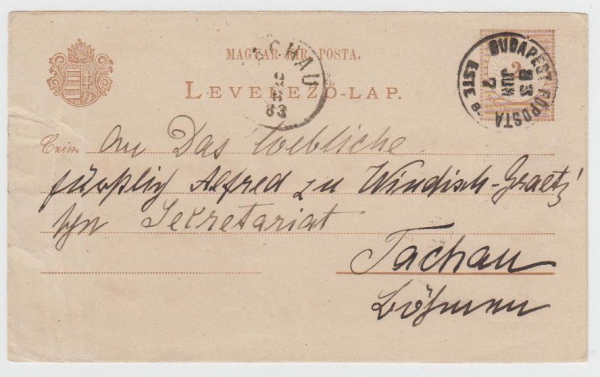 MAGYAR KIR. POSTA.
LEVELEZŐ-LAP.
TACHAU
83
BUDAPEST FŐPOSTA
83
JUN
7
ESTE
2
Czim:
An Das Loebliche
fürstlich Alfred zu Windisch-Graetz'
sche Sekretariat
Tachau
Böhmen